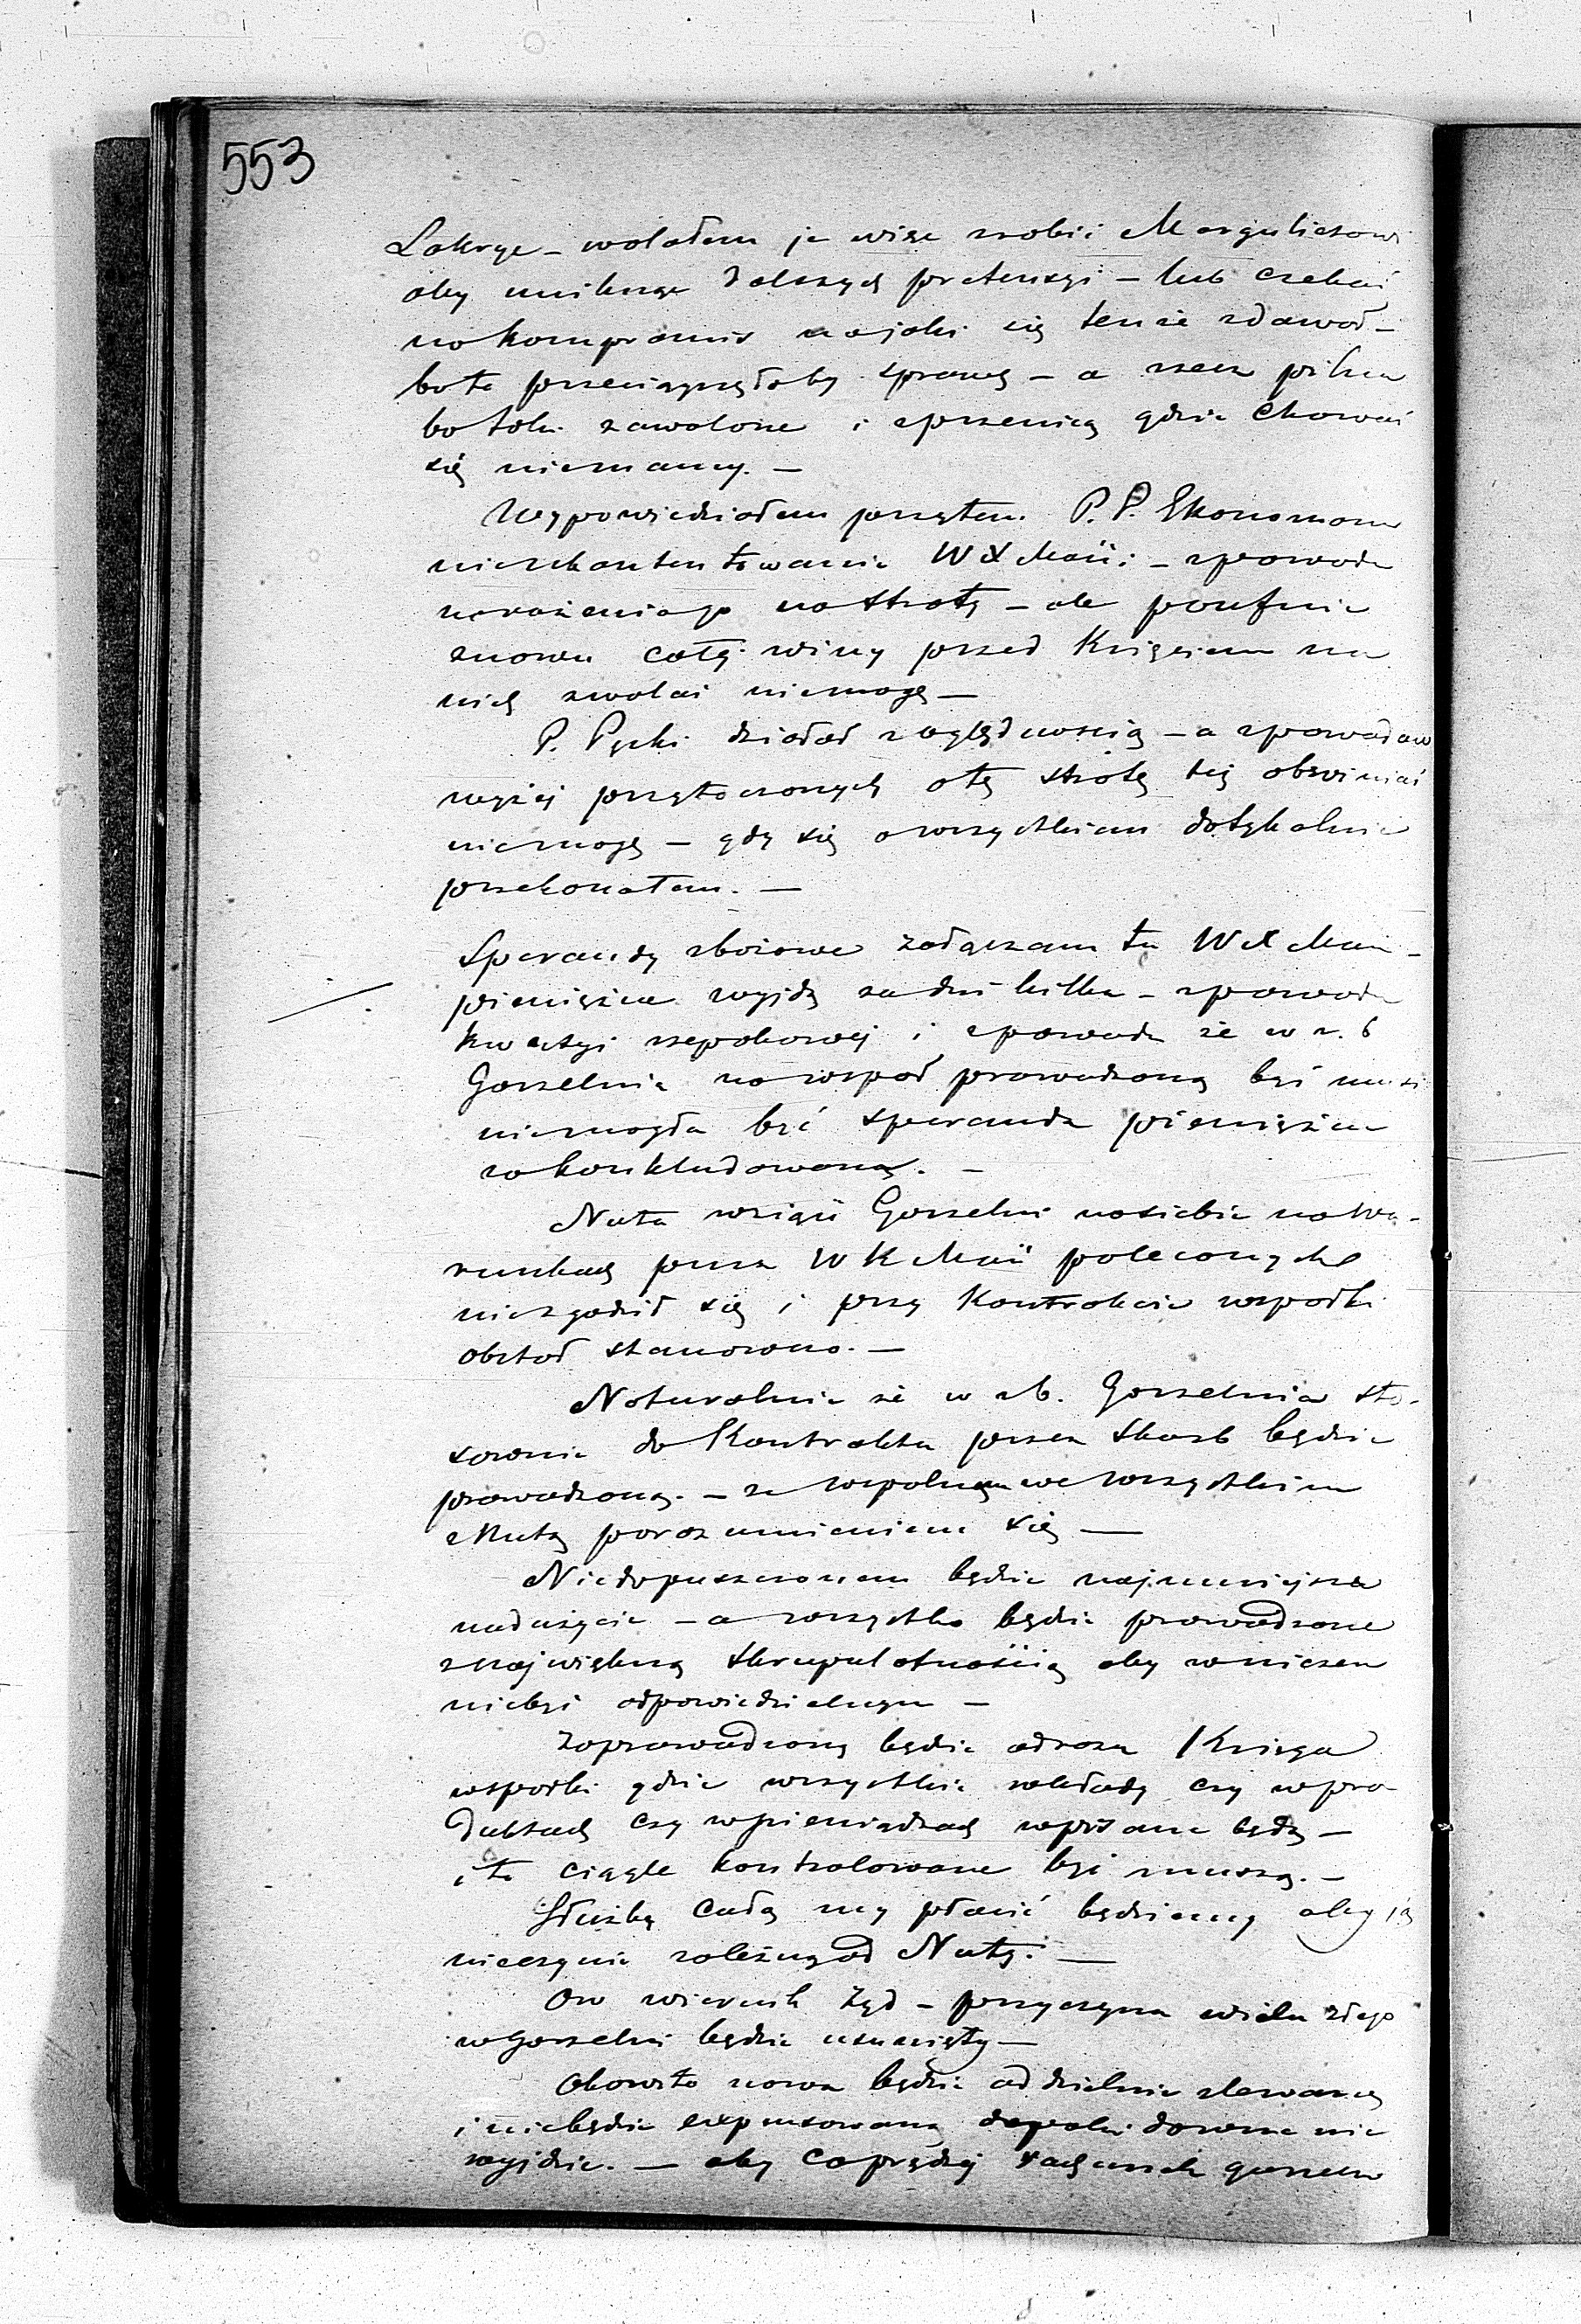 553
Lokryc – wolałem je więc zrobić Marguliesowi
aby uniknąć dalszych pretensyi – lub czekać
na kompromis na jaki się tenże zdawał –
bo to przeciągnęłoby sprawę – a rzecz pilna
bo toki zawalone i z pszenicą gdzie chować
się niemamy. –
Wypowiedziałem przytem P. P. Ekonomom
nieukontentowanie WX Mości – z powodu
narażenia go na stratę – ale poufnie
znowu całej winy przed Księciem na
nich zwalać niemogę –
P. Pęski działał z oględnością – a z powodów
wyżej przytoczonych o tę stratę tej obwiniać
niemogę – gdy się o wszystkiem dotykalnie
przekonałem. –
Sperandy zbożowe załączam tu WX Mości –
pieniężne wyjdą za dni kilka – z powodu
kwestyi rzepakowej i z powodu że w r. b
Gorzelnia na wspoł prowadzoną być musi
niemogła być speranda pieniężna
zakonkludowaną. –
Nuta wziąść Gorzelni na siebie na wa-
runkach przez WX Mość poleconych
niezgodził się i przy Kontrakcie wspołki
obstał stanowczo. –
Naturalnie że w r b. Gorzelnia sto-
sownie do Kontraktu przez Skarb będzie
prowadzoną. – ze wspolnem we wszystkiem
z Nutą porozumieniem się —
Niedopuszczonem będzie najmniejsze
nadużycie – a wszystko będzie prowadzone
z największą skrupulatnością aby w niczem
niebyć odpowiedzialnym –
Zaprowadzoną będzie odrazu Księga
wspołki gdzie wszystkie nakłady czy w pro-
duktach czy w pieniądzach wpisane będą –
i to ciągle kontrolowane być muszą. –
Służbę całą my płacić będziemy aby ją
nieczynić zależną od Nuty. —
Ow wiernik Żyd – przyczyna wielu złego
w Gorzelni będzie usunięty —
Okowita nowa będzie oddzielnie zlewaną
i niebędzie expensowaną dopoki dawna nie
wyjdzie. — aby coprędzej rachunek gorzelni